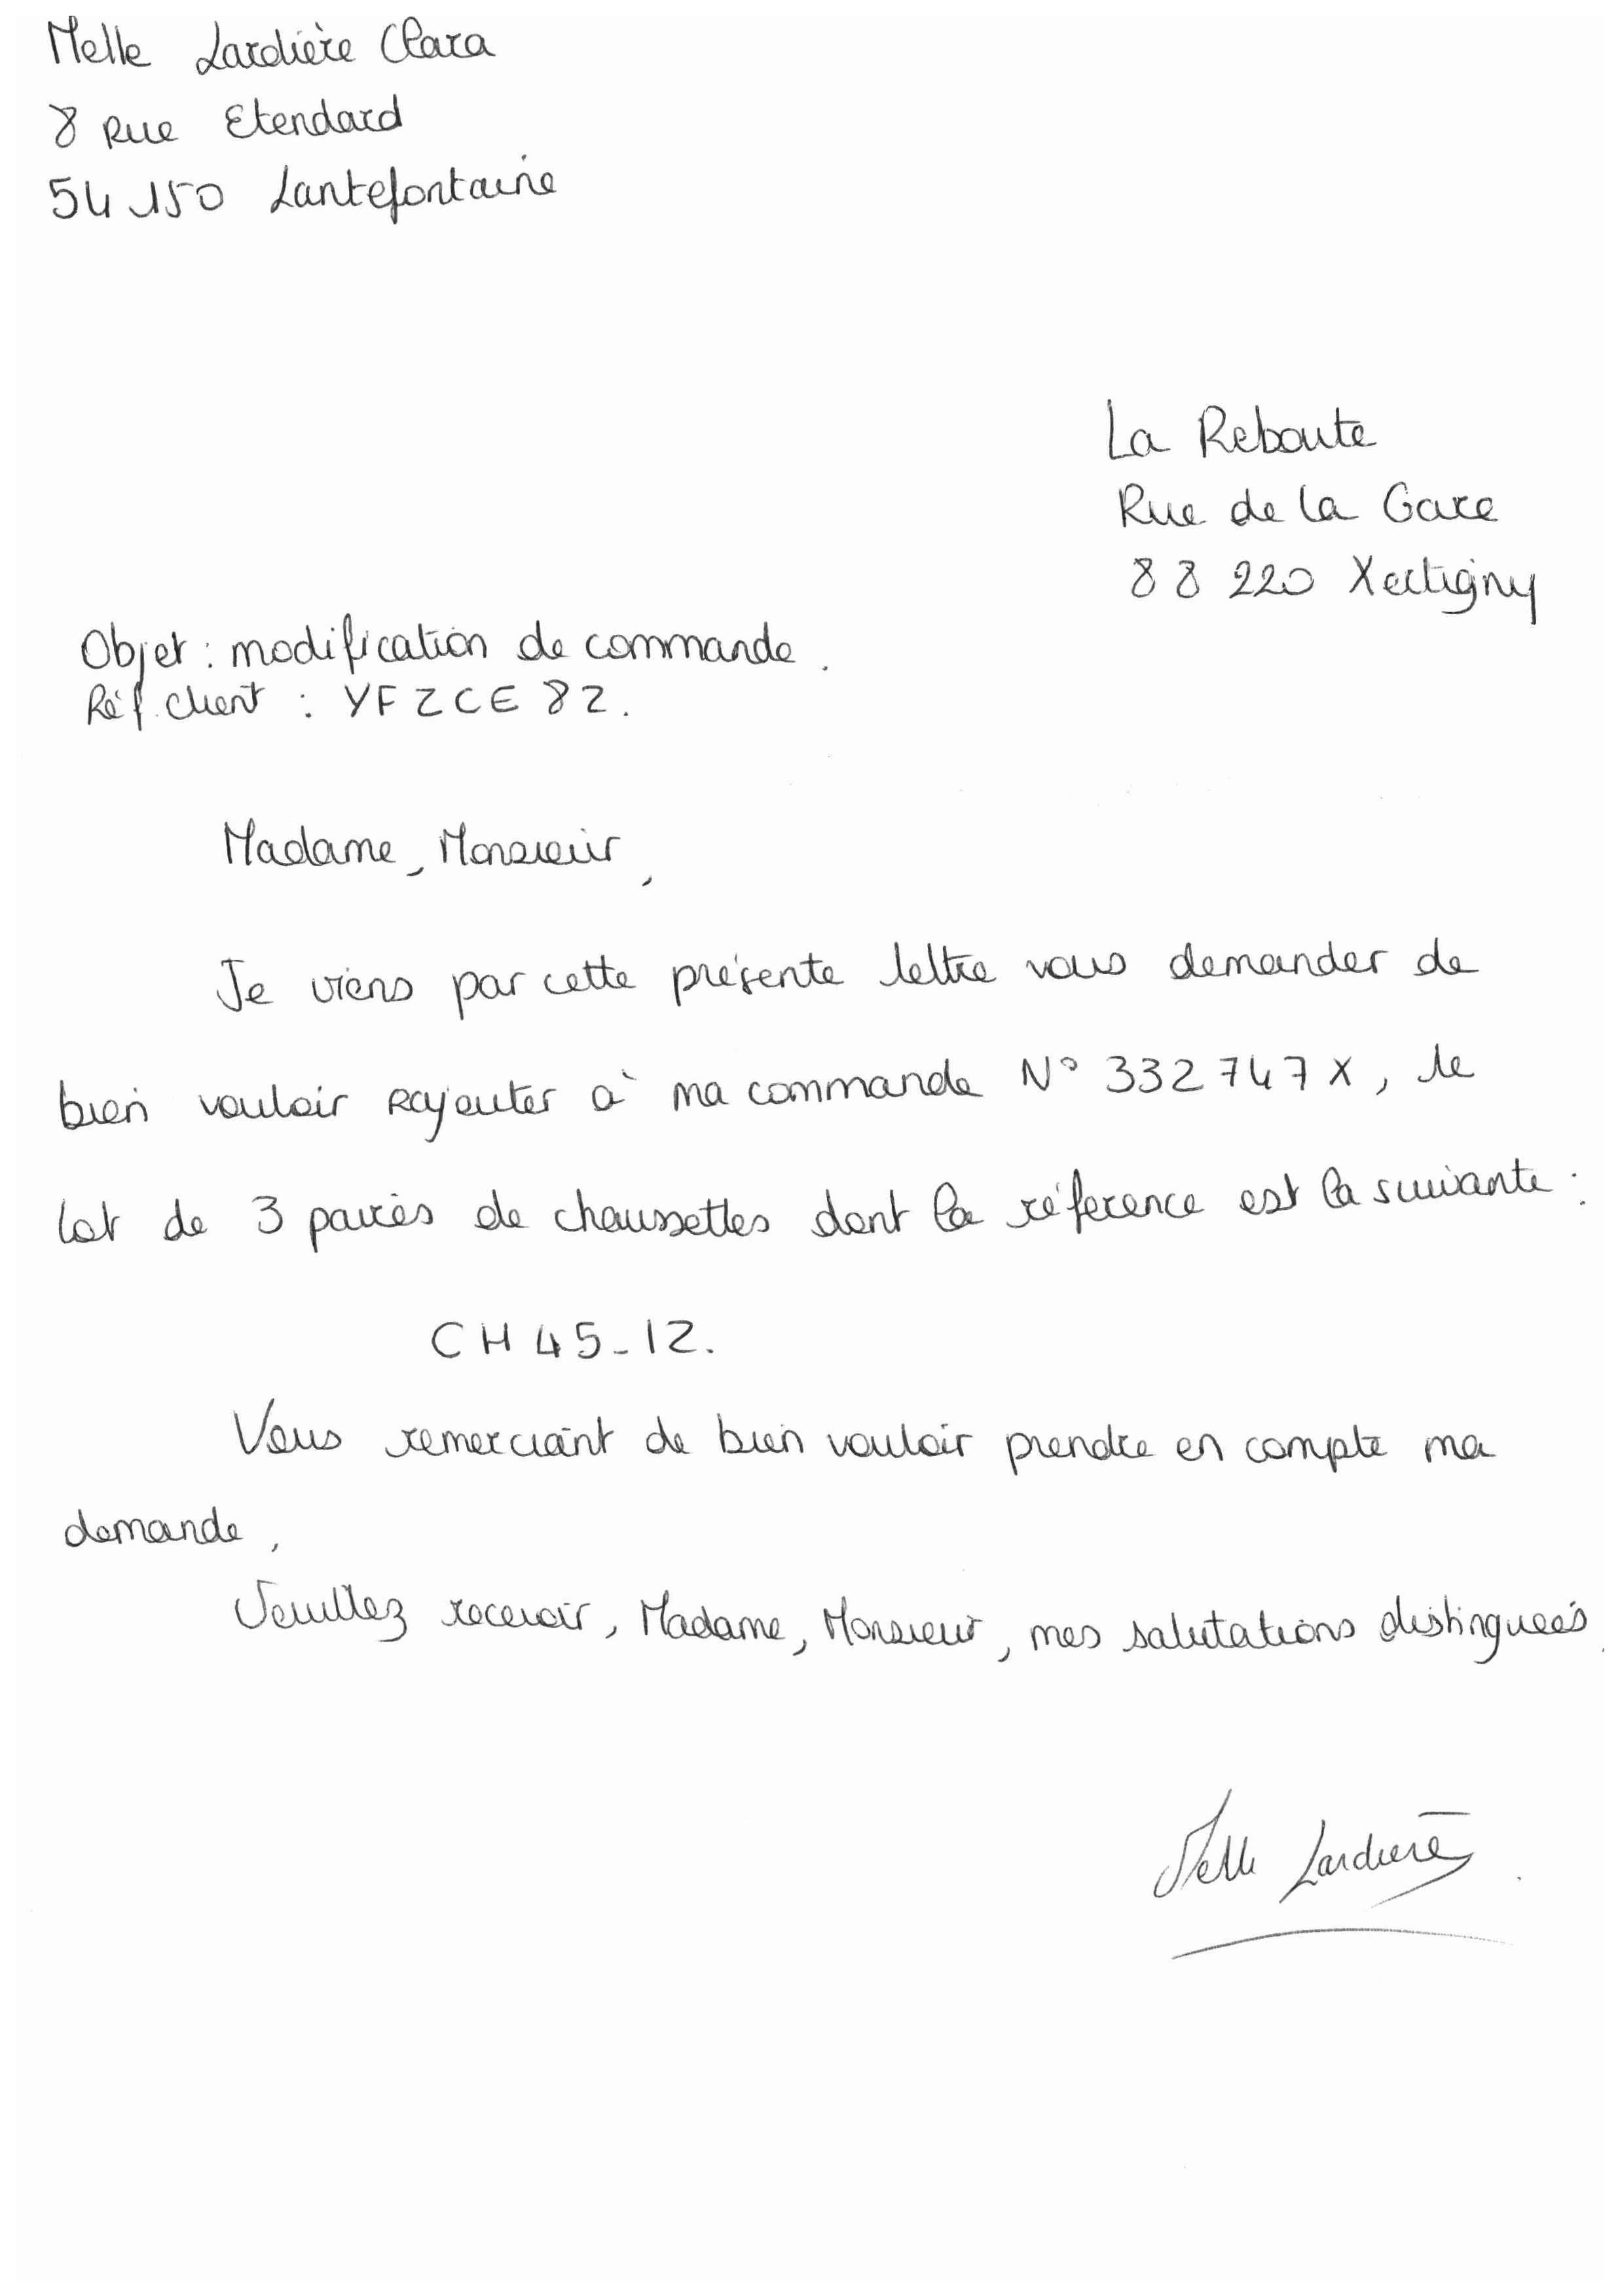 Melle Lardière Clara
8 Rue Etendard
54 150 Lantefontaine
La Reboute
Rue de la Gare
88 220 Xertigny
Objet : modification de commande.
Réf. client : YFZCE 82.
Madame, Monsieur,
Je viens par cette présente lettre vous demander de
bien vouloir rajouter à ma commande N° 332 747 X, le
lot de 3 paires de chaussettes dont la référence est la suivante :
CH 45-12.
Vous remerciant de bien vouloir prendre en compte ma
demande,
Veuillez recevoir, Madame, Monsieur, mes salutations distinguées.
Melle Lardière